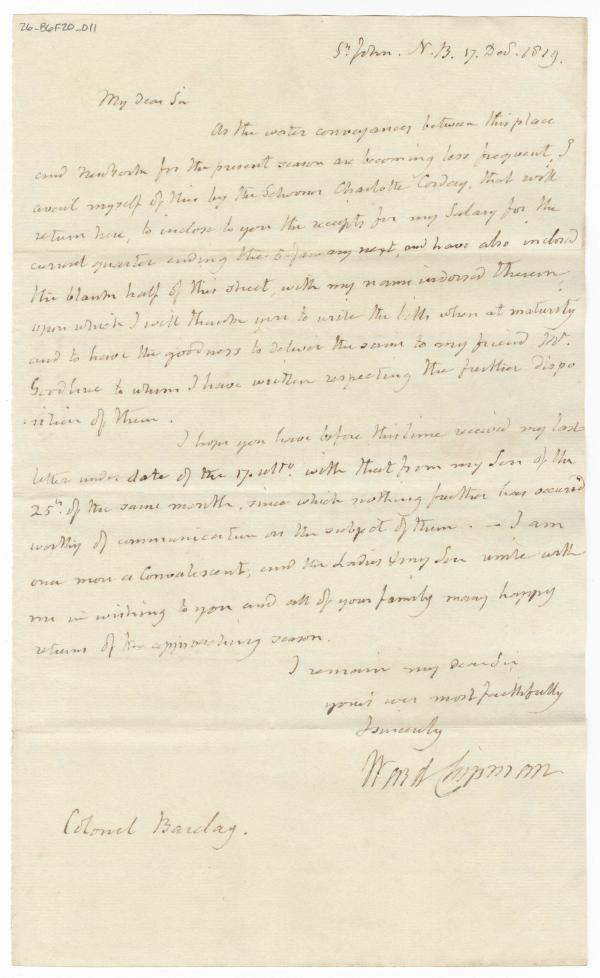 26-B6F20-011
St. John. N.B. 17. Decr. 1819.
My dear Sir
As the water conveyances between this place
and New York for the present season are becoming less frequent, I
avail myself of this by the Schooner Charlotte Corday, that will
return here, to inclose to you the receipts for my Salary for the
current quarter ending the 5 January next, and have also inclosed
the blank half of this sheet, with my name indorsed thereon,
upon which I will thank you to write the bills when at maturity
and to have the goodness to deliver the same to my friend Mr.
Goodhue to whom I have written respecting the further dispo
sition of them.
I hope you have before this time received my last
letter under date of the 17. ulto. with that from my Son of the
25th. of the same month, since which nothing further has occurred
worthy of communication on the subject of them. — I am
once more a Convalescent, and the Ladies & my Son unite with
me in wishing to you and all of your family many happy
returns of the approaching season.
I remain my dear Sir
yours ever most faithfully
& sincerely
Ward Chipman
Colonel Barclay.